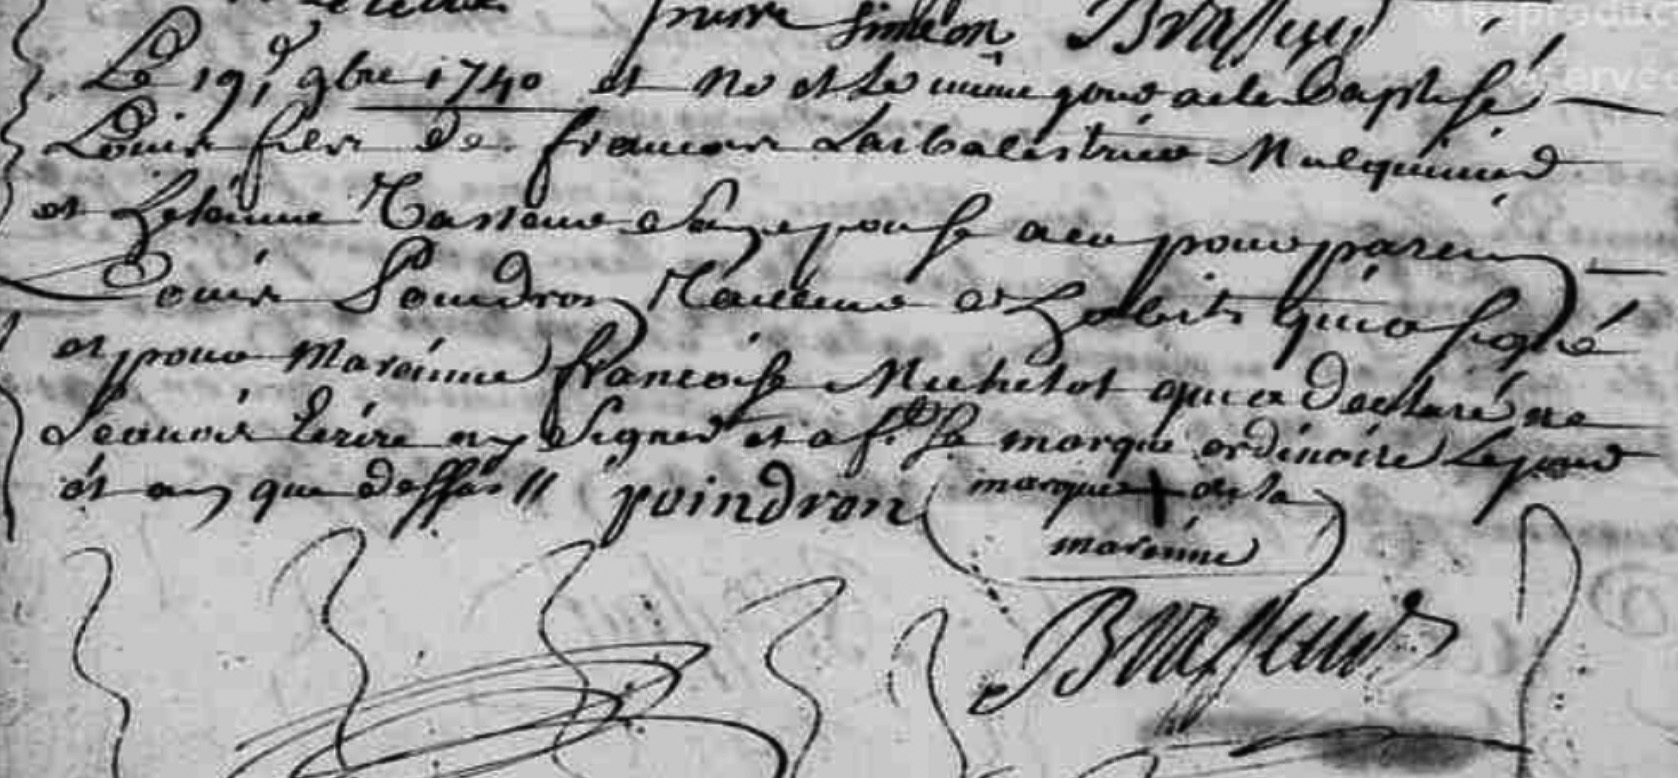 pierre simeon Brasseur
Le 19e 9bre 1740 est né et le même jour a été Baptisé
Louis fils de francois Larbalestrier Mulquinier
et Hélainne Tasseme Sa epouse a eu pour parein
Louis Poindron Tailleur d'habits qui a signé
et pour Mareinne francoise Michelot qui a declaré ne
Scavoir Ecrire ny Signer et a fd Sa marque ordinaire Le jour
et an que dessus // poindron marque + de la
mareinne
Brasseur